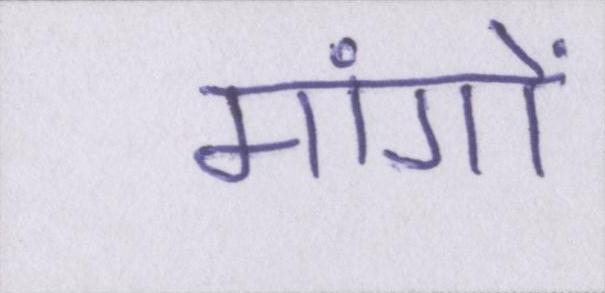 मांगों